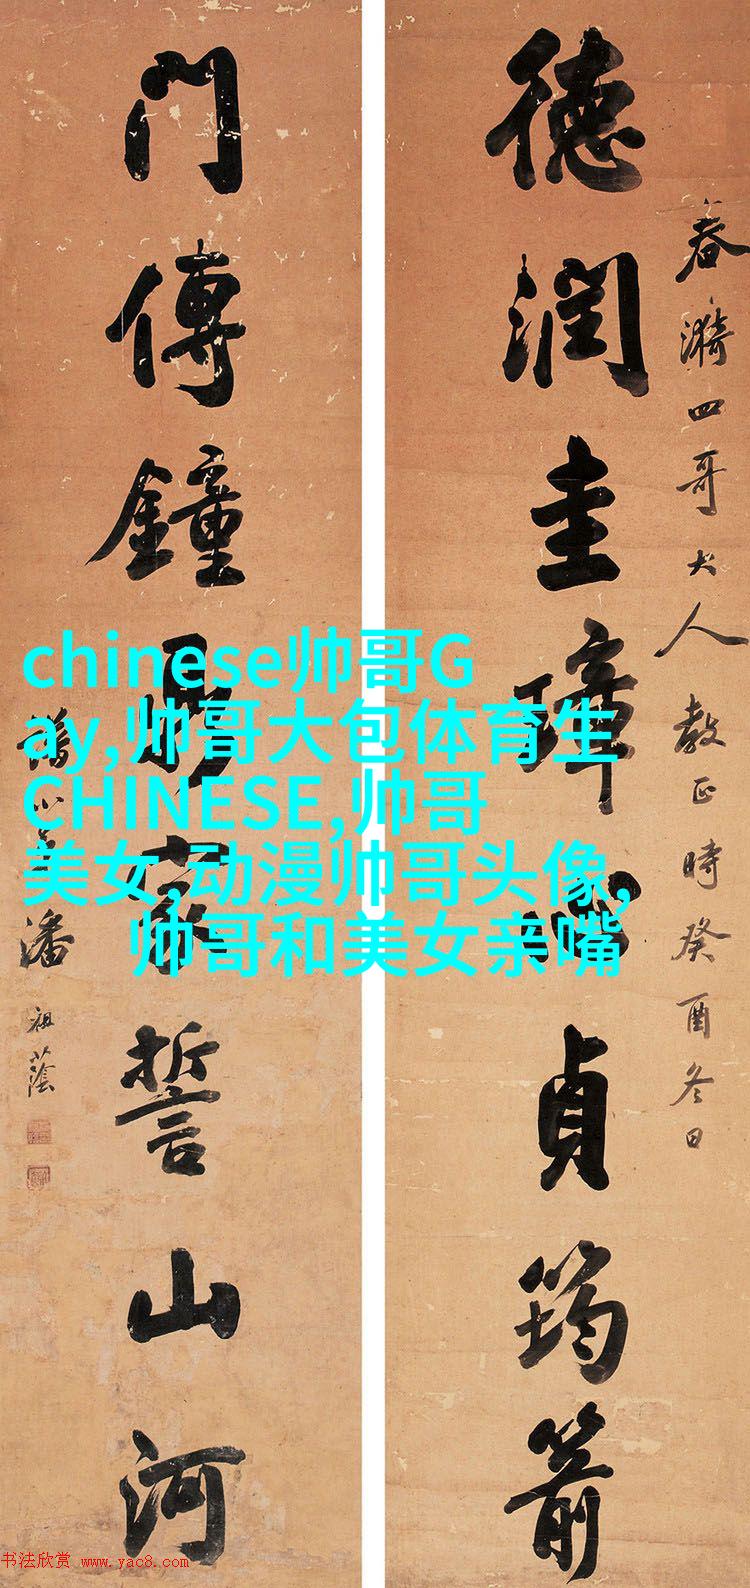 春漪四哥大人教正時癸酉冬日
德潤圭璋心貞筠箭
門傳鐘家誓山河
潘祖蔭
chinese帅哥G
ay,帅哥大包体育生
CHINESE,帅哥
美女,动漫帅哥头像,
帅哥和美女亲嘴
书法欣赏 www.yac8.com